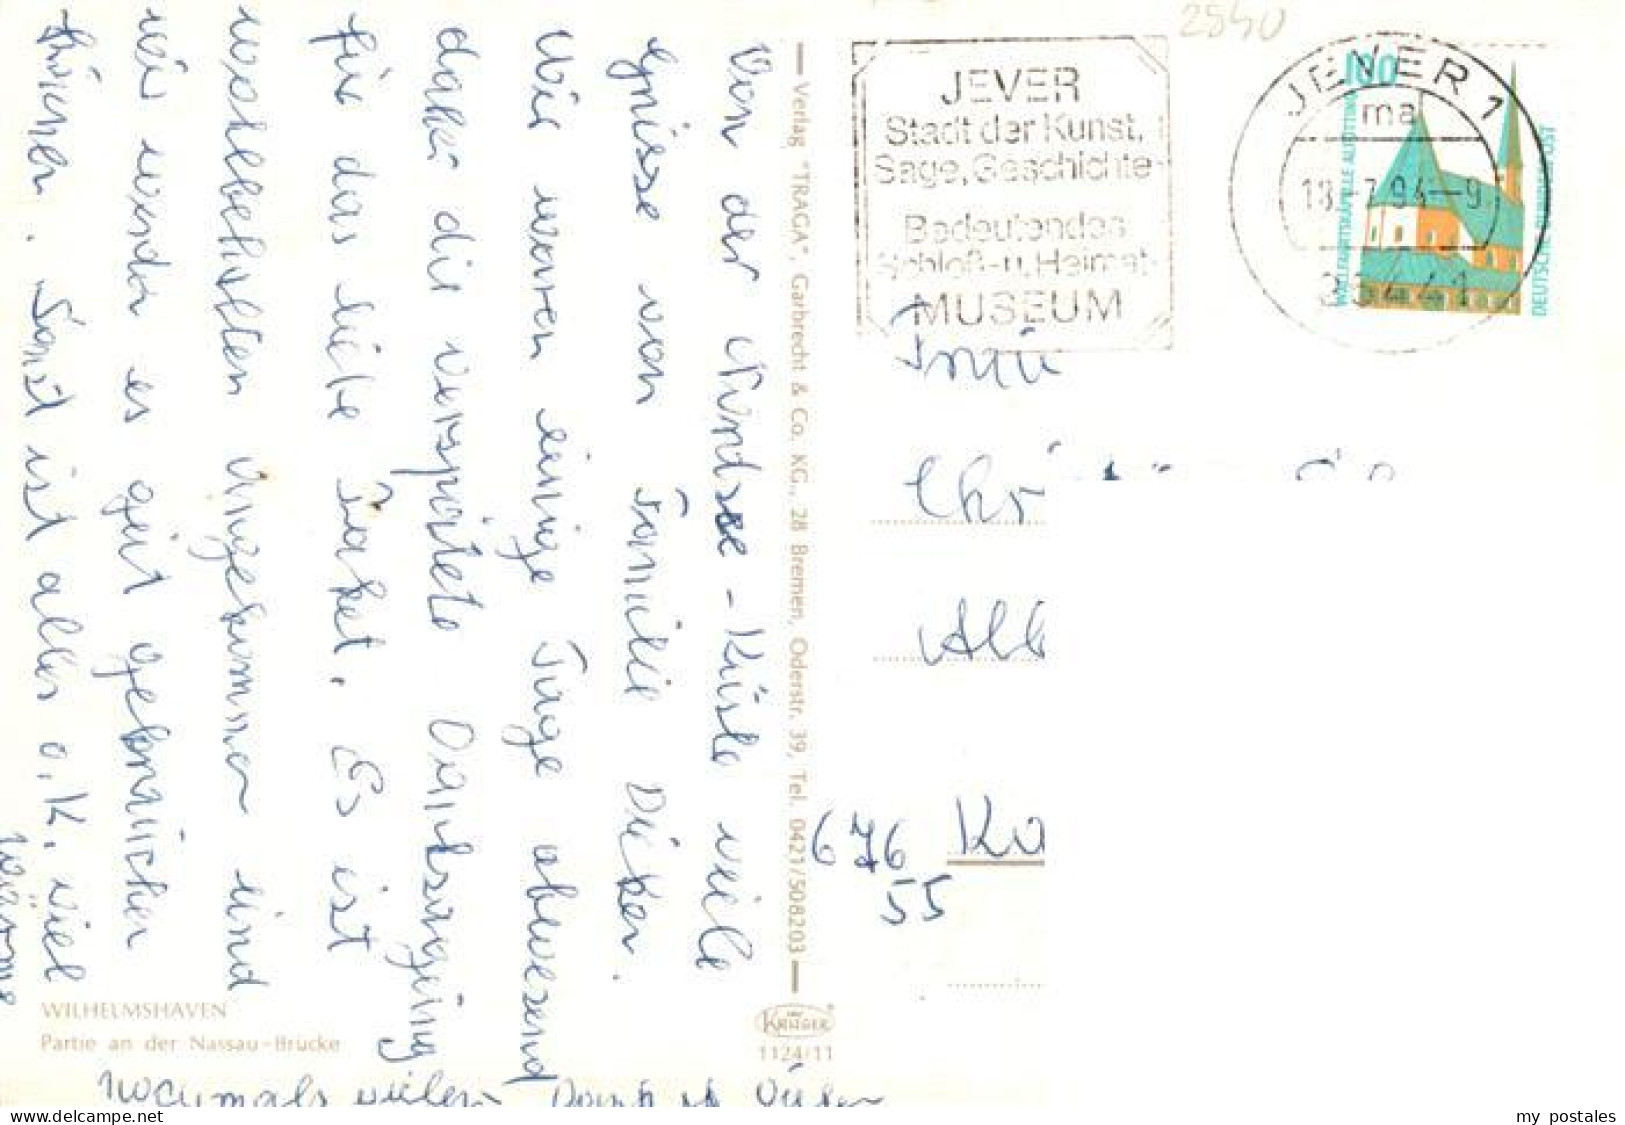 Von der Nordsee-Küste viele
Grüsse von Familie Dieker.
Wir waren einige Tage abwesend
daher die verspätete Danksagung
für das liebe Paket. Es ist
wohlbehalten angekommen und
wir werden es gut gebrauchen
können. Sonst ist alles o.K. viel
Wärme
Nochmals vielen Dank
WILHELMSHAVEN
Partie an der Nassau-Brücke
Verlag "TRAGA", Garbrecht & Co. KG., 28 Bremen, Oderstr. 39, Tel. 0421/508203
KRÜGER
1124/11
2840
JEVER
Stadt der Kunst,
Sage, Geschichte
Bedeutendes
Schloß- u. Heimat-
MUSEUM
JEVER 1
ma
18.-7.94-9
26441
100
WALLFAHRTSKAPELLE ALTÖTTING
DEUTSCHE BUNDESPOST
Chr
Alb
676
55
Ka
my postales